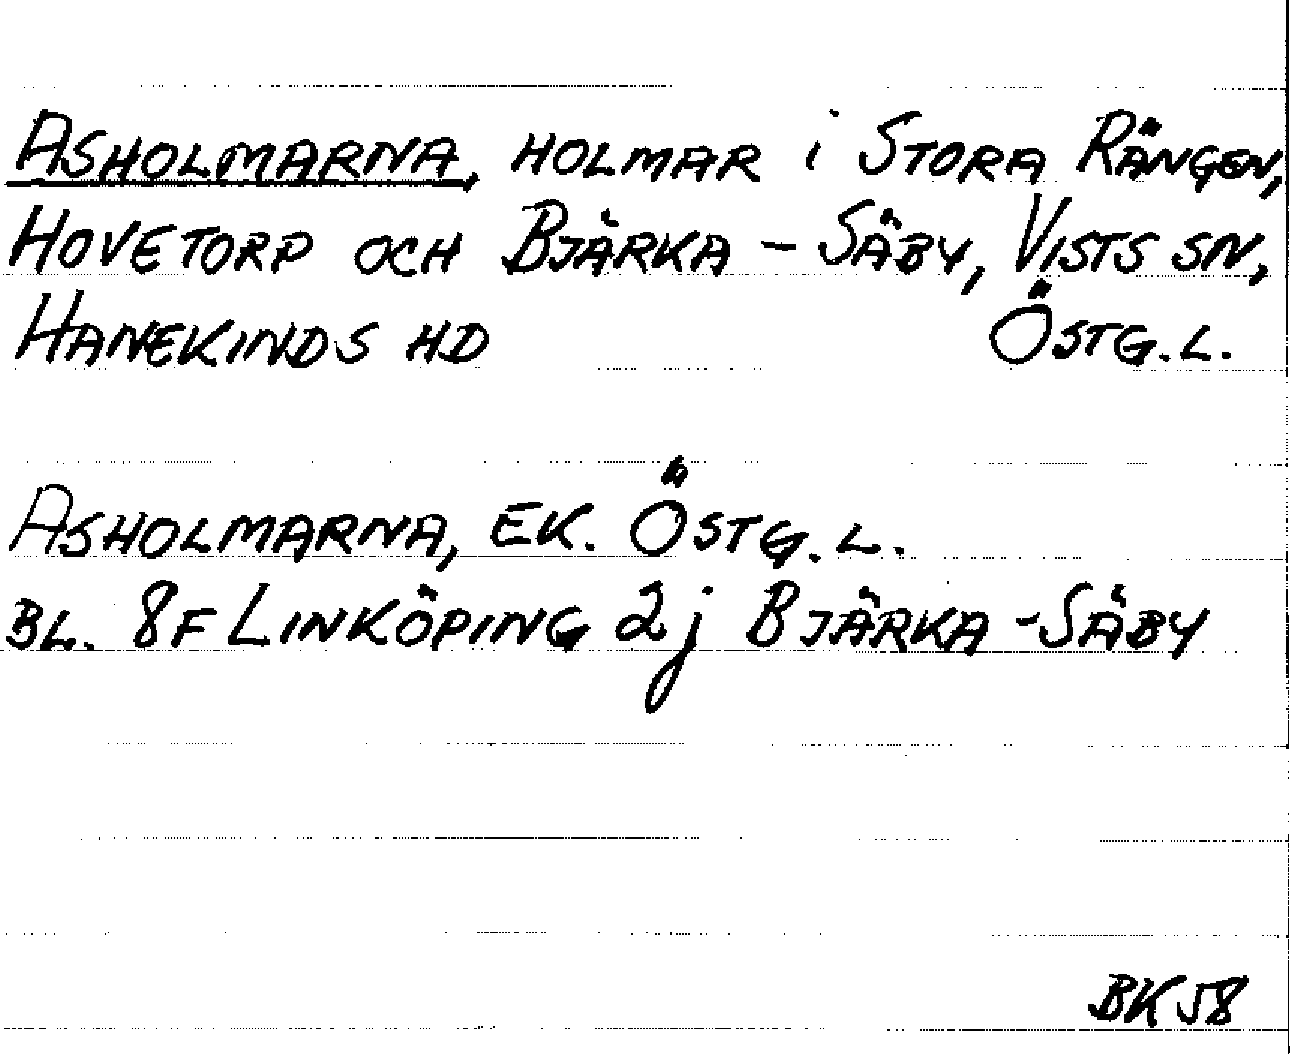 ASHOLMARNA, HOLMAR i STORA RÄNGEN,
HOVETORP OCH BJÄRKA - SÄBY, VISTS SN,
HANEKINDS HD ÖSTG.L.
ASHOLMARNA, EK. ÖSTG.L.
BL. 8F LINKÖPING 2j BJÄRKA-SÄBY
BK 58